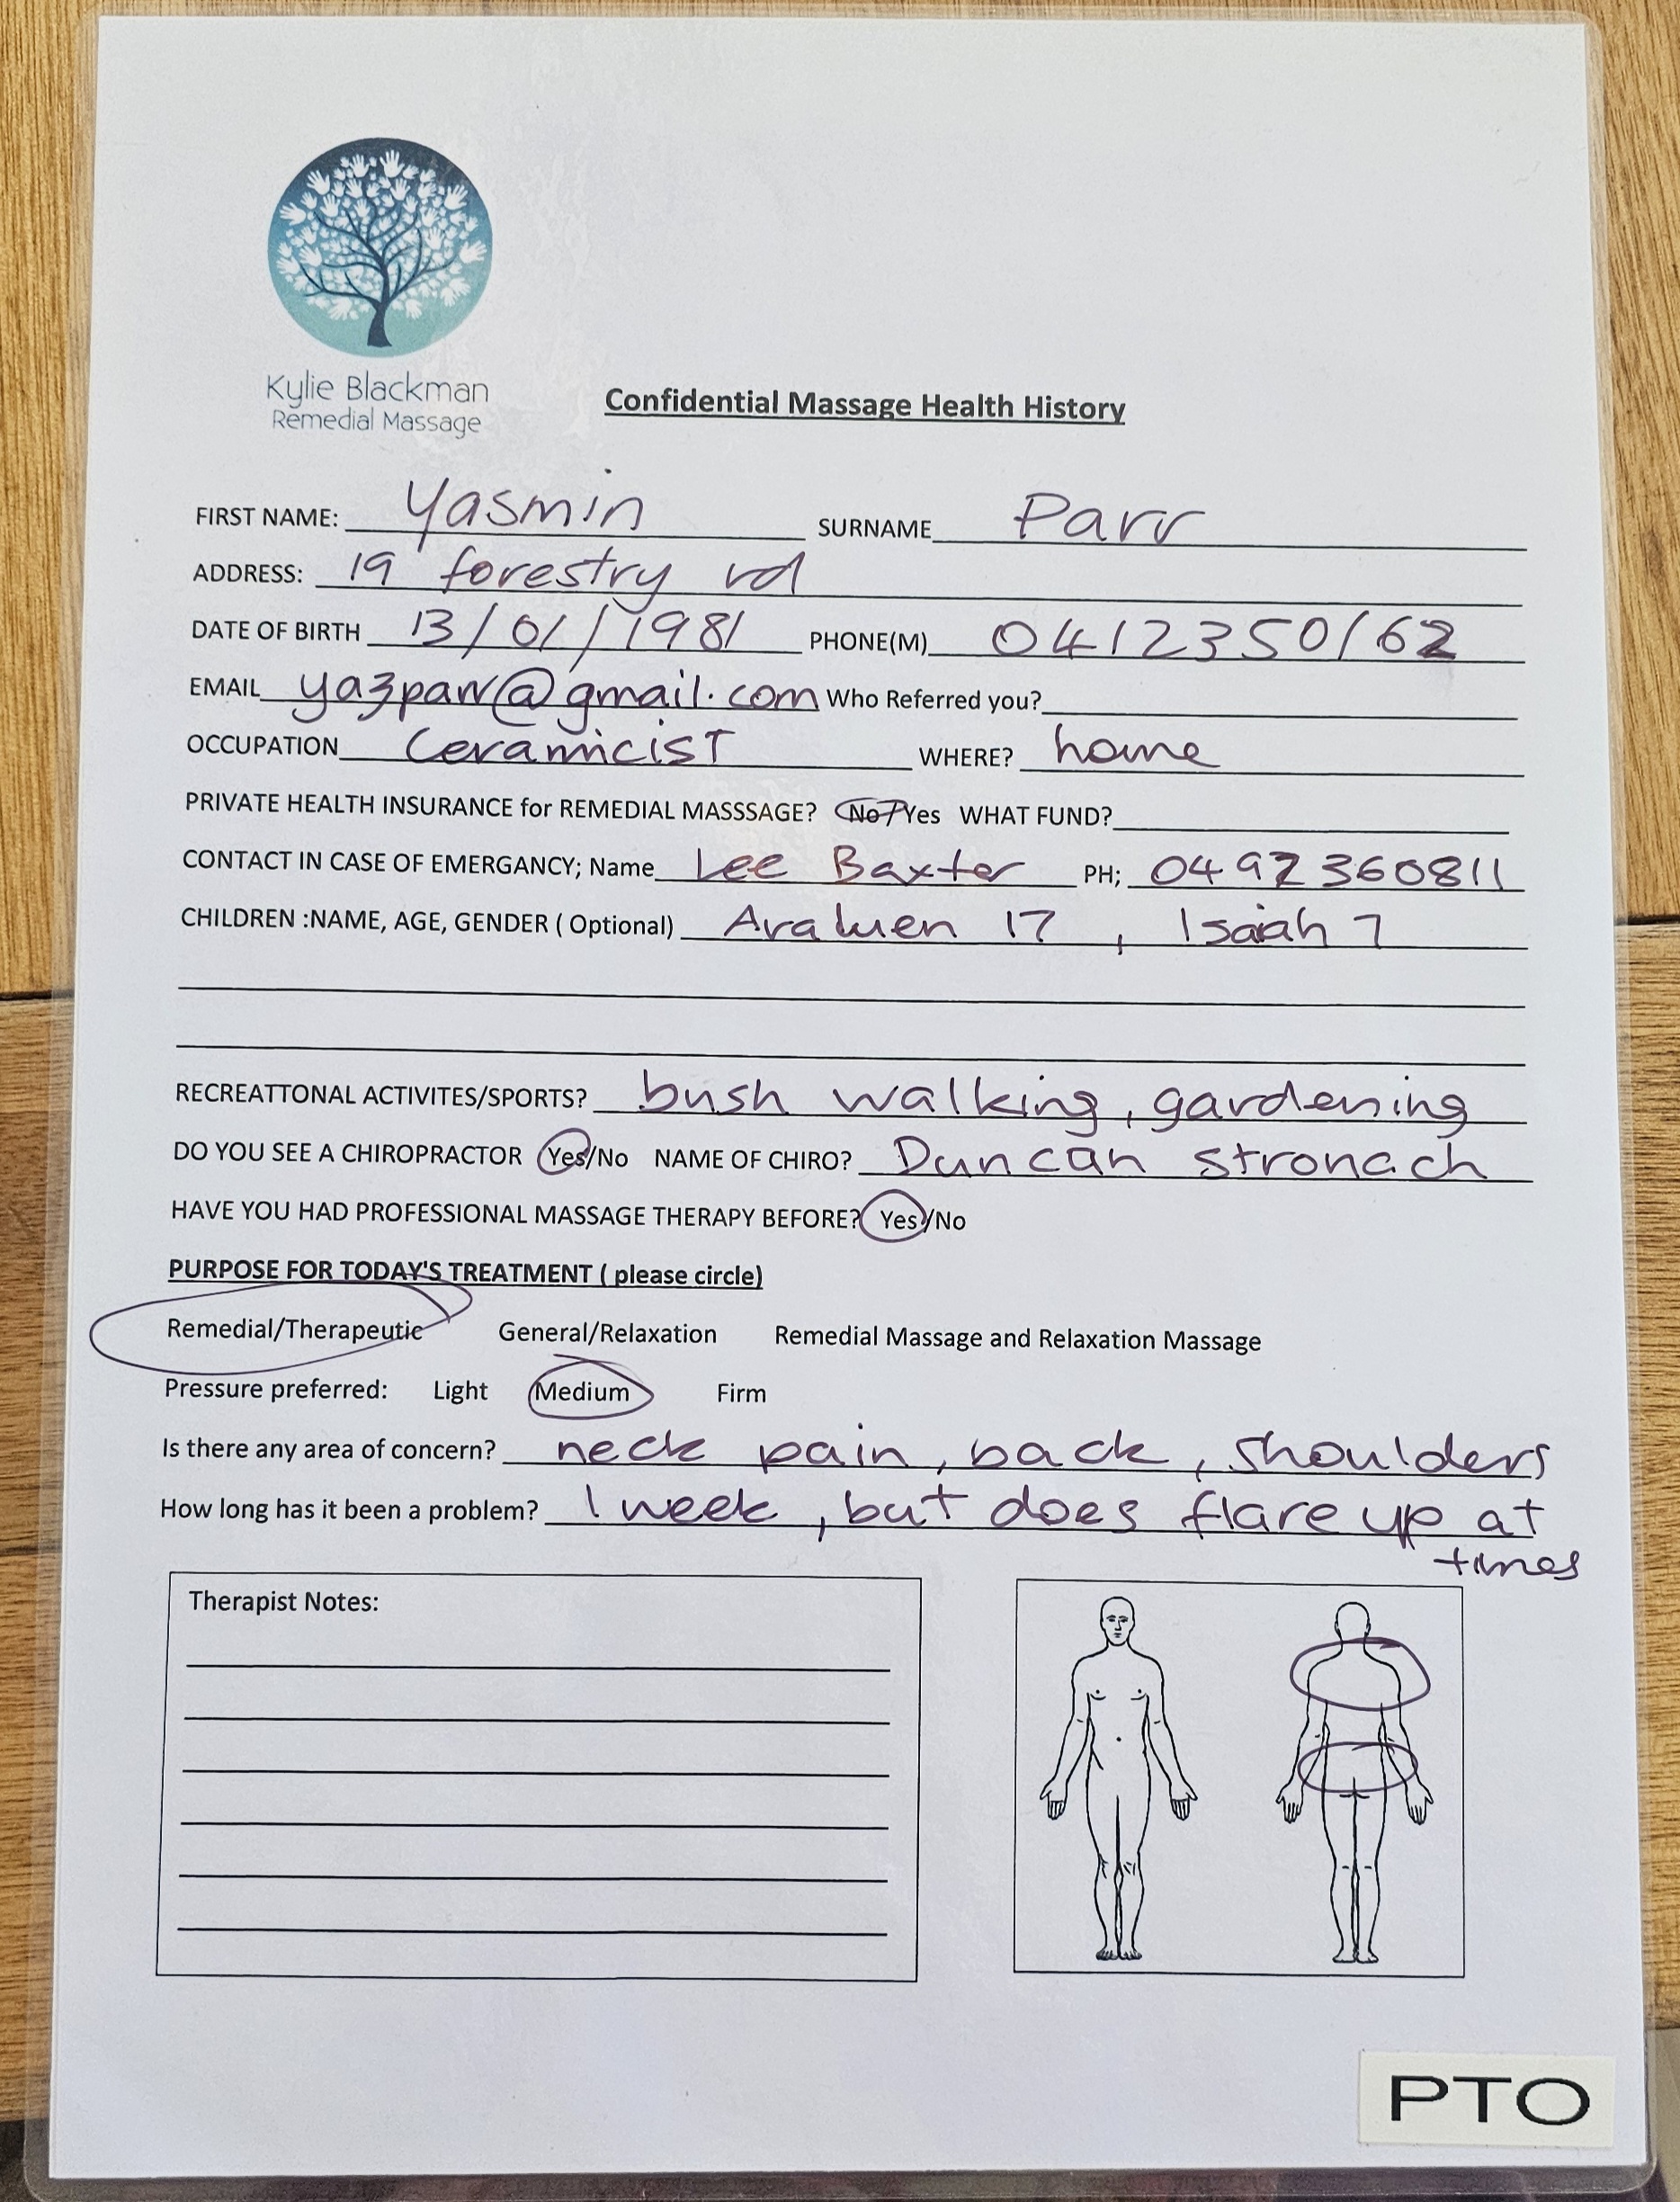 Kylie Blackman
Remedial Massage
Confidential Massage Health History
FIRST NAME: Yasmin SURNAME Parr
ADDRESS: 19 forestry rd
DATE OF BIRTH 13/01/1981 PHONE(M) 0412350162
EMAIL yazparr@gmail.com Who Referred you?
OCCUPATION Ceramicist WHERE? home
PRIVATE HEALTH INSURANCE for REMEDIAL MASSSAGE? No/Yes WHAT FUND?
CONTACT IN CASE OF EMERGANCY; Name Lee Baxter PH; 0492360811
CHILDREN :NAME, AGE, GENDER ( Optional) Araluen 17, Isaiah 7
RECREATTONAL ACTIVITES/SPORTS? bush walking, gardening
DO YOU SEE A CHIROPRACTOR Yes/No NAME OF CHIRO? Duncan stronach
HAVE YOU HAD PROFESSIONAL MASSAGE THERAPY BEFORE? Yes/No
PURPOSE FOR TODAY'S TREATMENT ( please circle)
Remedial/Therapeutic General/Relaxation Remedial Massage and Relaxation Massage
Pressure preferred: Light Medium Firm
Is there any area of concern? neck pain, back, shoulders
How long has it been a problem? 1 week, but does flare up at
times
Therapist Notes:
PTO